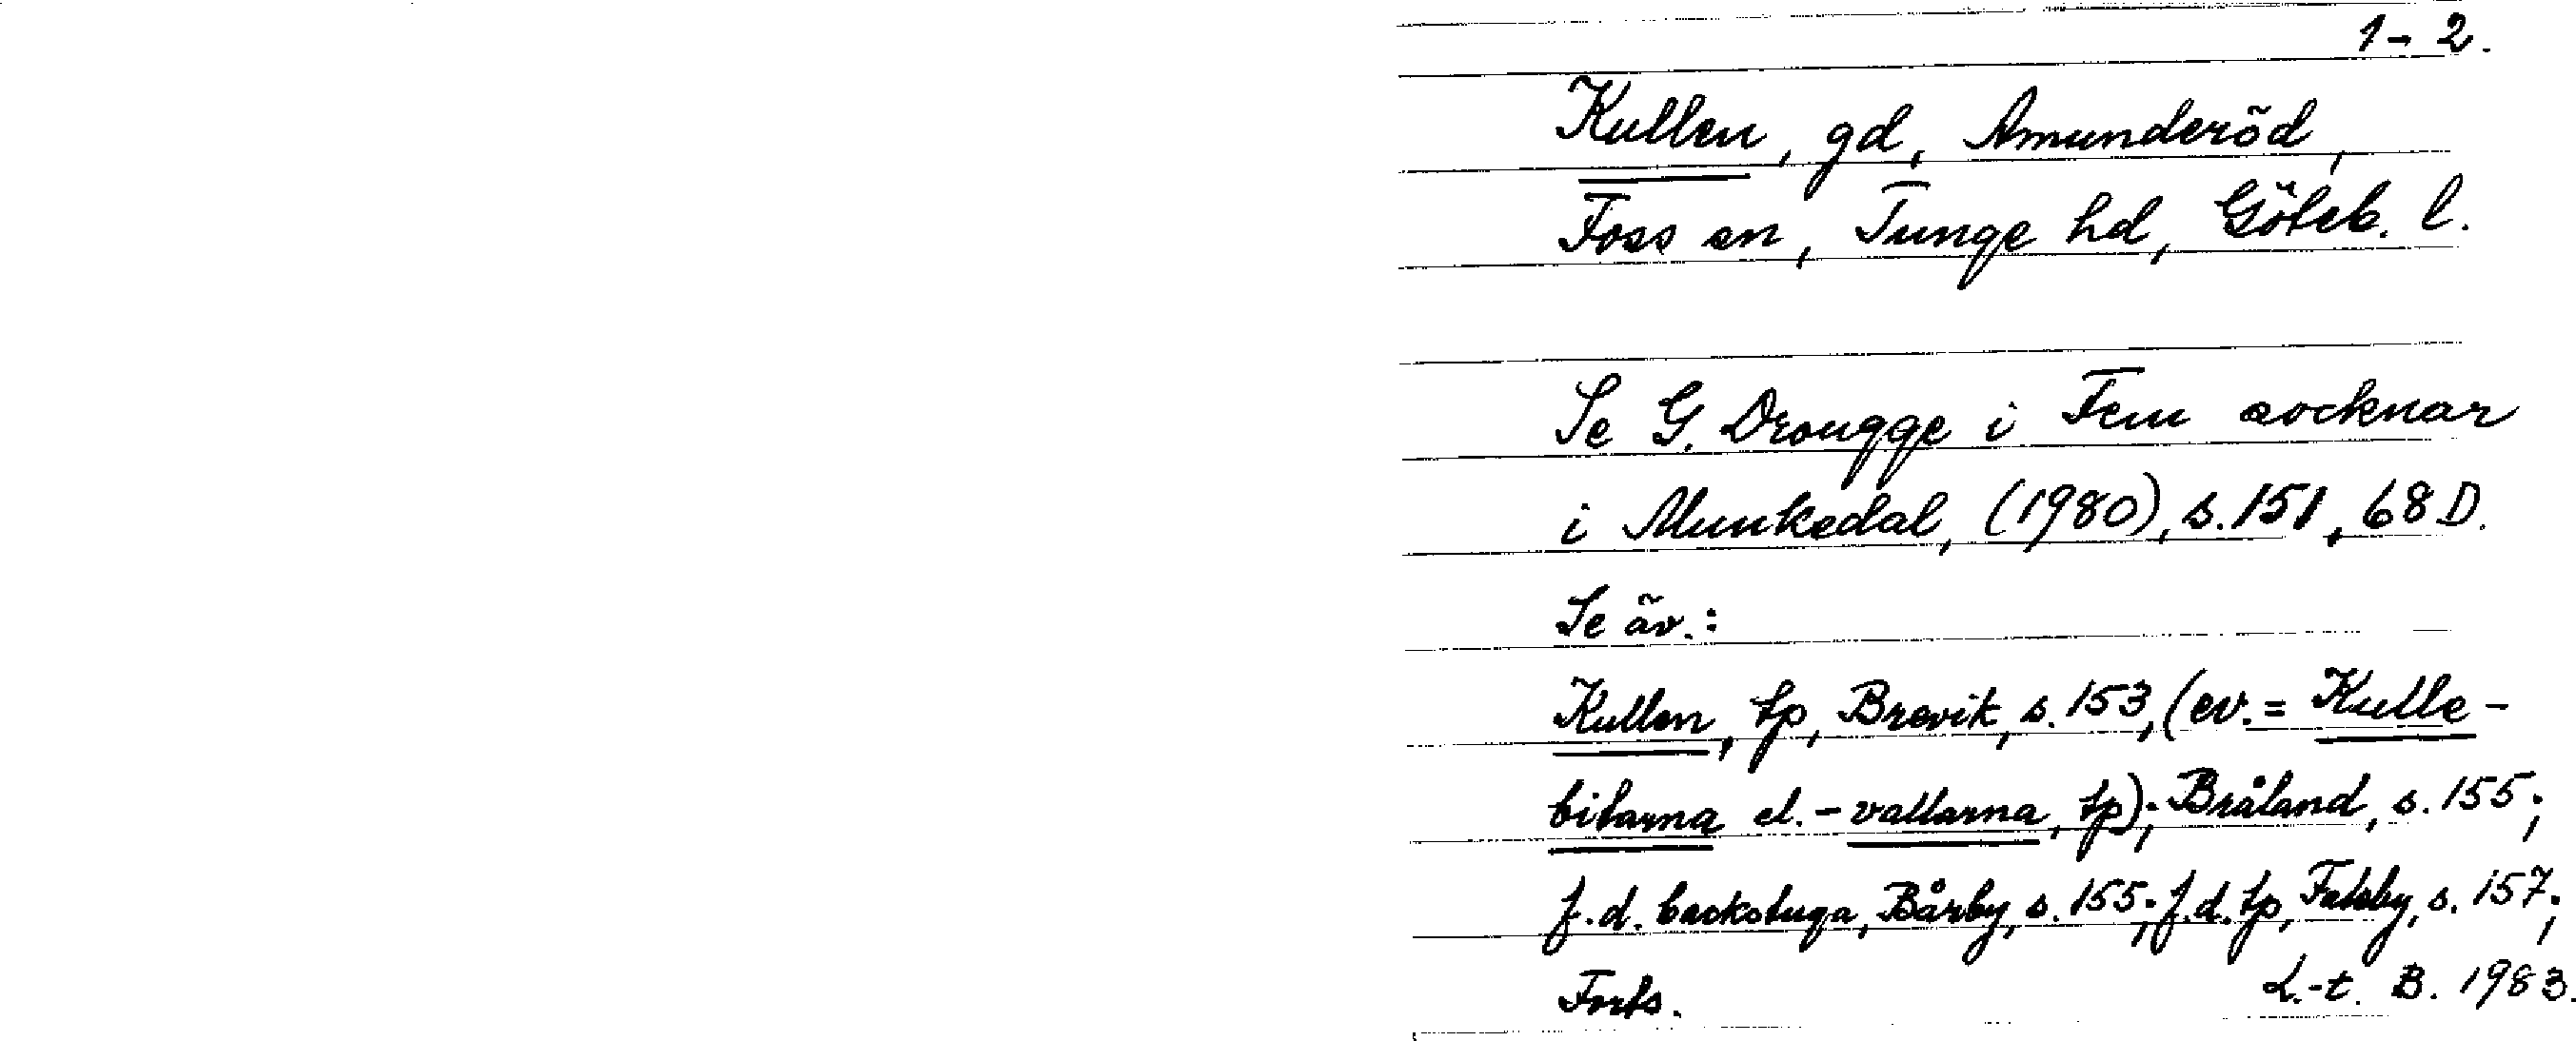 1-2.
Kullen, gd, Amunderöd,
Foss sn, Tunge hd, Göteb. l.
Se G. Drougge i Fem socknar
i Munkedal, (1980), s. 151, 68 D.
Se äv.:
Kullen, tp, Brevik, s. 153, (ev. = Kulle-
bitarna el. -vallarna, tp); Bråland, s. 155;
f.d. backstuga, Bårby, s. 155; f.d. tp, Faleby, s. 157;
Forts. L.-t. B. 1983.